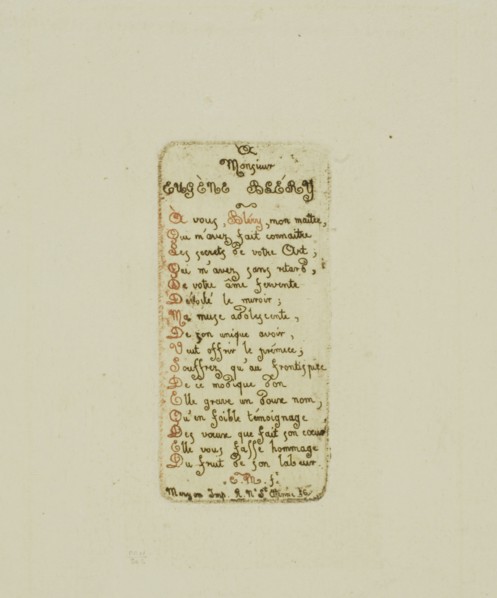 A
Monsieur
EUGÈNE BLÉRY
À vous, Bléry, mon maître,
Qui m'avez fait connaître
Les secrets de votre Art,
Qui m'avez sans retard,
De votre âme fervente
Dévoilé le miroir;
Ma muse adolescente,
De son unique avoir,
Veut offrir le prémice;
Souffrez qu'au frontispice
De ce modique don
Elle grave un doux nom,
Qu'en foible témoignage
Des vœux que fait son cœur
Elle vous fasse hommage
Du fruit de son labeur
C. M. f.
Meryon Imp. R. Nve St Etienne